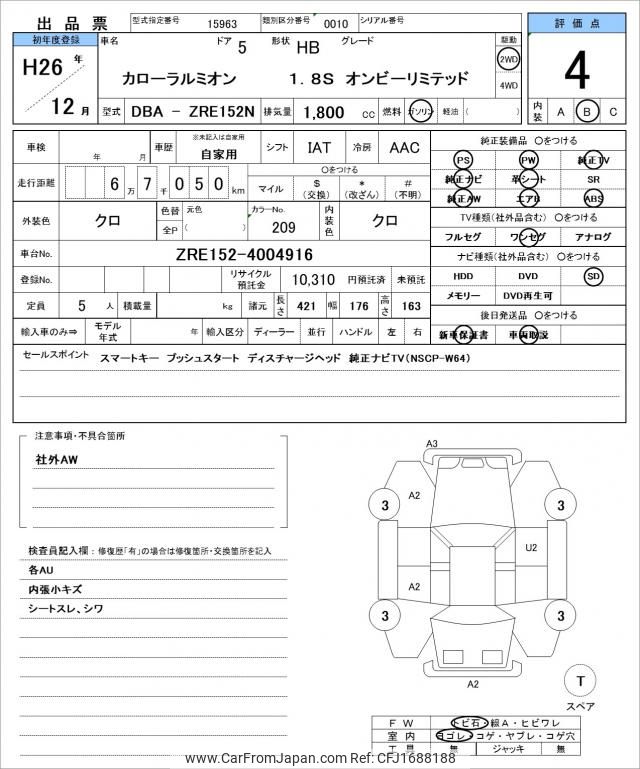 出品票 型式指定番号 15963 類別区分番号 0010 シリアル番号
評価点
初年度登録 車名 ドア 5 形状 HB グレード 駆動
H26 年 12 月
カローラルミオン 1.8S オンビーリミテッド
2WD
4WD
4
型式 DBA - ZRE152N 排気量 1,800 cc 燃料 ガソリン 軽油 ( )
内装 A B C
車検 年 月 車歴 ※未記入は自家用 自家用 シフト IAT 冷房 AAC
走行距離 6 万 7 千 0 5 0 km
〇をつける
マイル $ (交換) * (改ざん) # (不明)
外装色 クロ 色替 全P 元色 ( ) カラーNo. 209 内装色 クロ
車台No. ZRE152-4004916
登録No. リサイクル預託金 10,310 円預託済 未預託
定員 5 人 積載量 kg 諸元 長さ 421 幅 176 高さ 163
輸入車のみ⇒ モデル年式 年 輸入区分 ディーラー 並行 ハンドル 左 右
純正装備品 〇をつける
PS PW 純正TV
純正ナビ 革シート SR
純正AW エアB ABS
TV種類(社外品含む) 〇をつける
フルセグ ワンセグ アナログ
ナビ種類(社外品含む) 〇をつける
HDD DVD SD
メモリー DVD再生可
後日発送品 〇をつける
新車保証書 車両取説
セールスポイント スマートキー プッシュスタート ディスチャージヘッド 純正ナビTV(NSCP-W64)
注意事項・不具合箇所
社外AW
検査員記入欄:修復歴「有」の場合は修復箇所・交換箇所を記入
各AU
内張小キズ
シートスレ、シワ
A3
A2
3 3
U2
A2
3 3
A2
T
スペア
FW トビ石・線A・ヒビワレ
室内 ヨゴレ・コゲ・ヤブレ・コゲ穴
工具 無 ジャッキ 無
www.CarFromJapan.com Ref: CFJ1688188